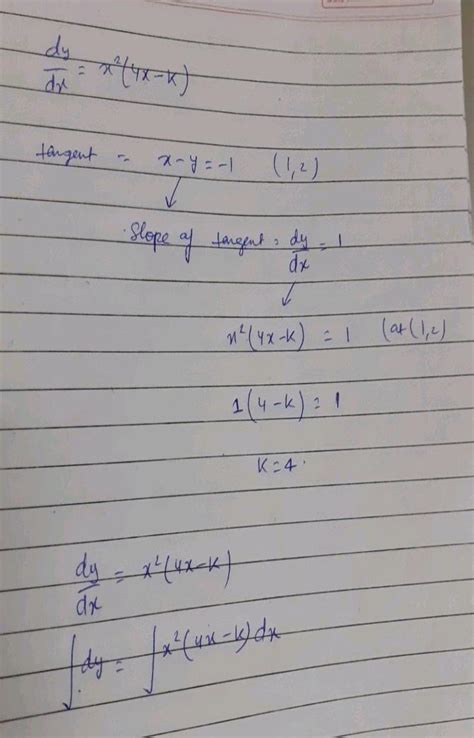 dy/dx = x²(4x-k)
tangent = x-y=-1 (1,2)
Slope of tangent = dy/dx = 1
x²(4x-k) = 1 (at (1,2)
1(4-k) = 1
k=4.
dy/dx = x²(4x-k)
∫dy = ∫x²(4x-k)dx